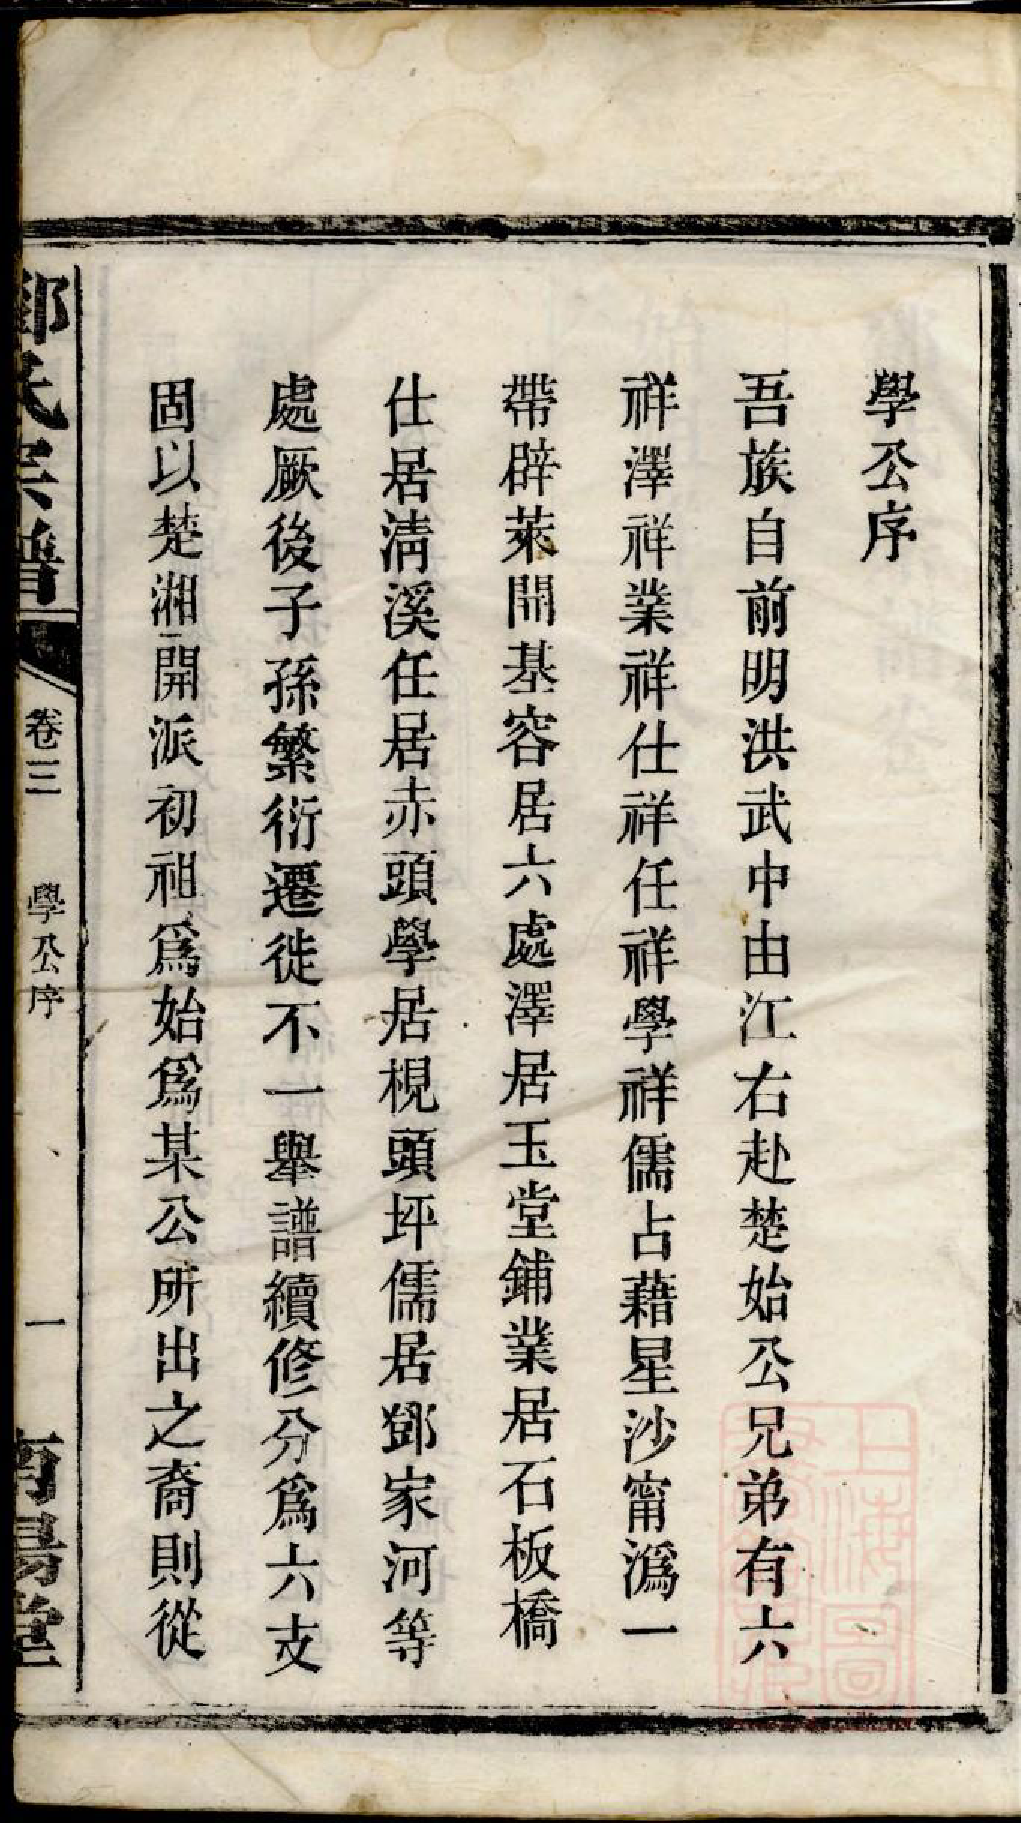 學公序
吾族自前明洪武中由江右赴楚始公兄弟有六
祥澤祥業祥仕祥任祥學祥儒占藉星沙甯潙一
帶辟萊開基容居六處澤居玉堂鋪業居石板橋
仕居清溪任居赤頭學居梘頭坪儒居鄧家河等
處厥後子孫繁衍遷徙不一舉譜續修分為六支
固以楚湘開派初祖為始為某公所出之裔則從
鄧氏宗譜
卷三
學公序
一
南陽堂
上海圖